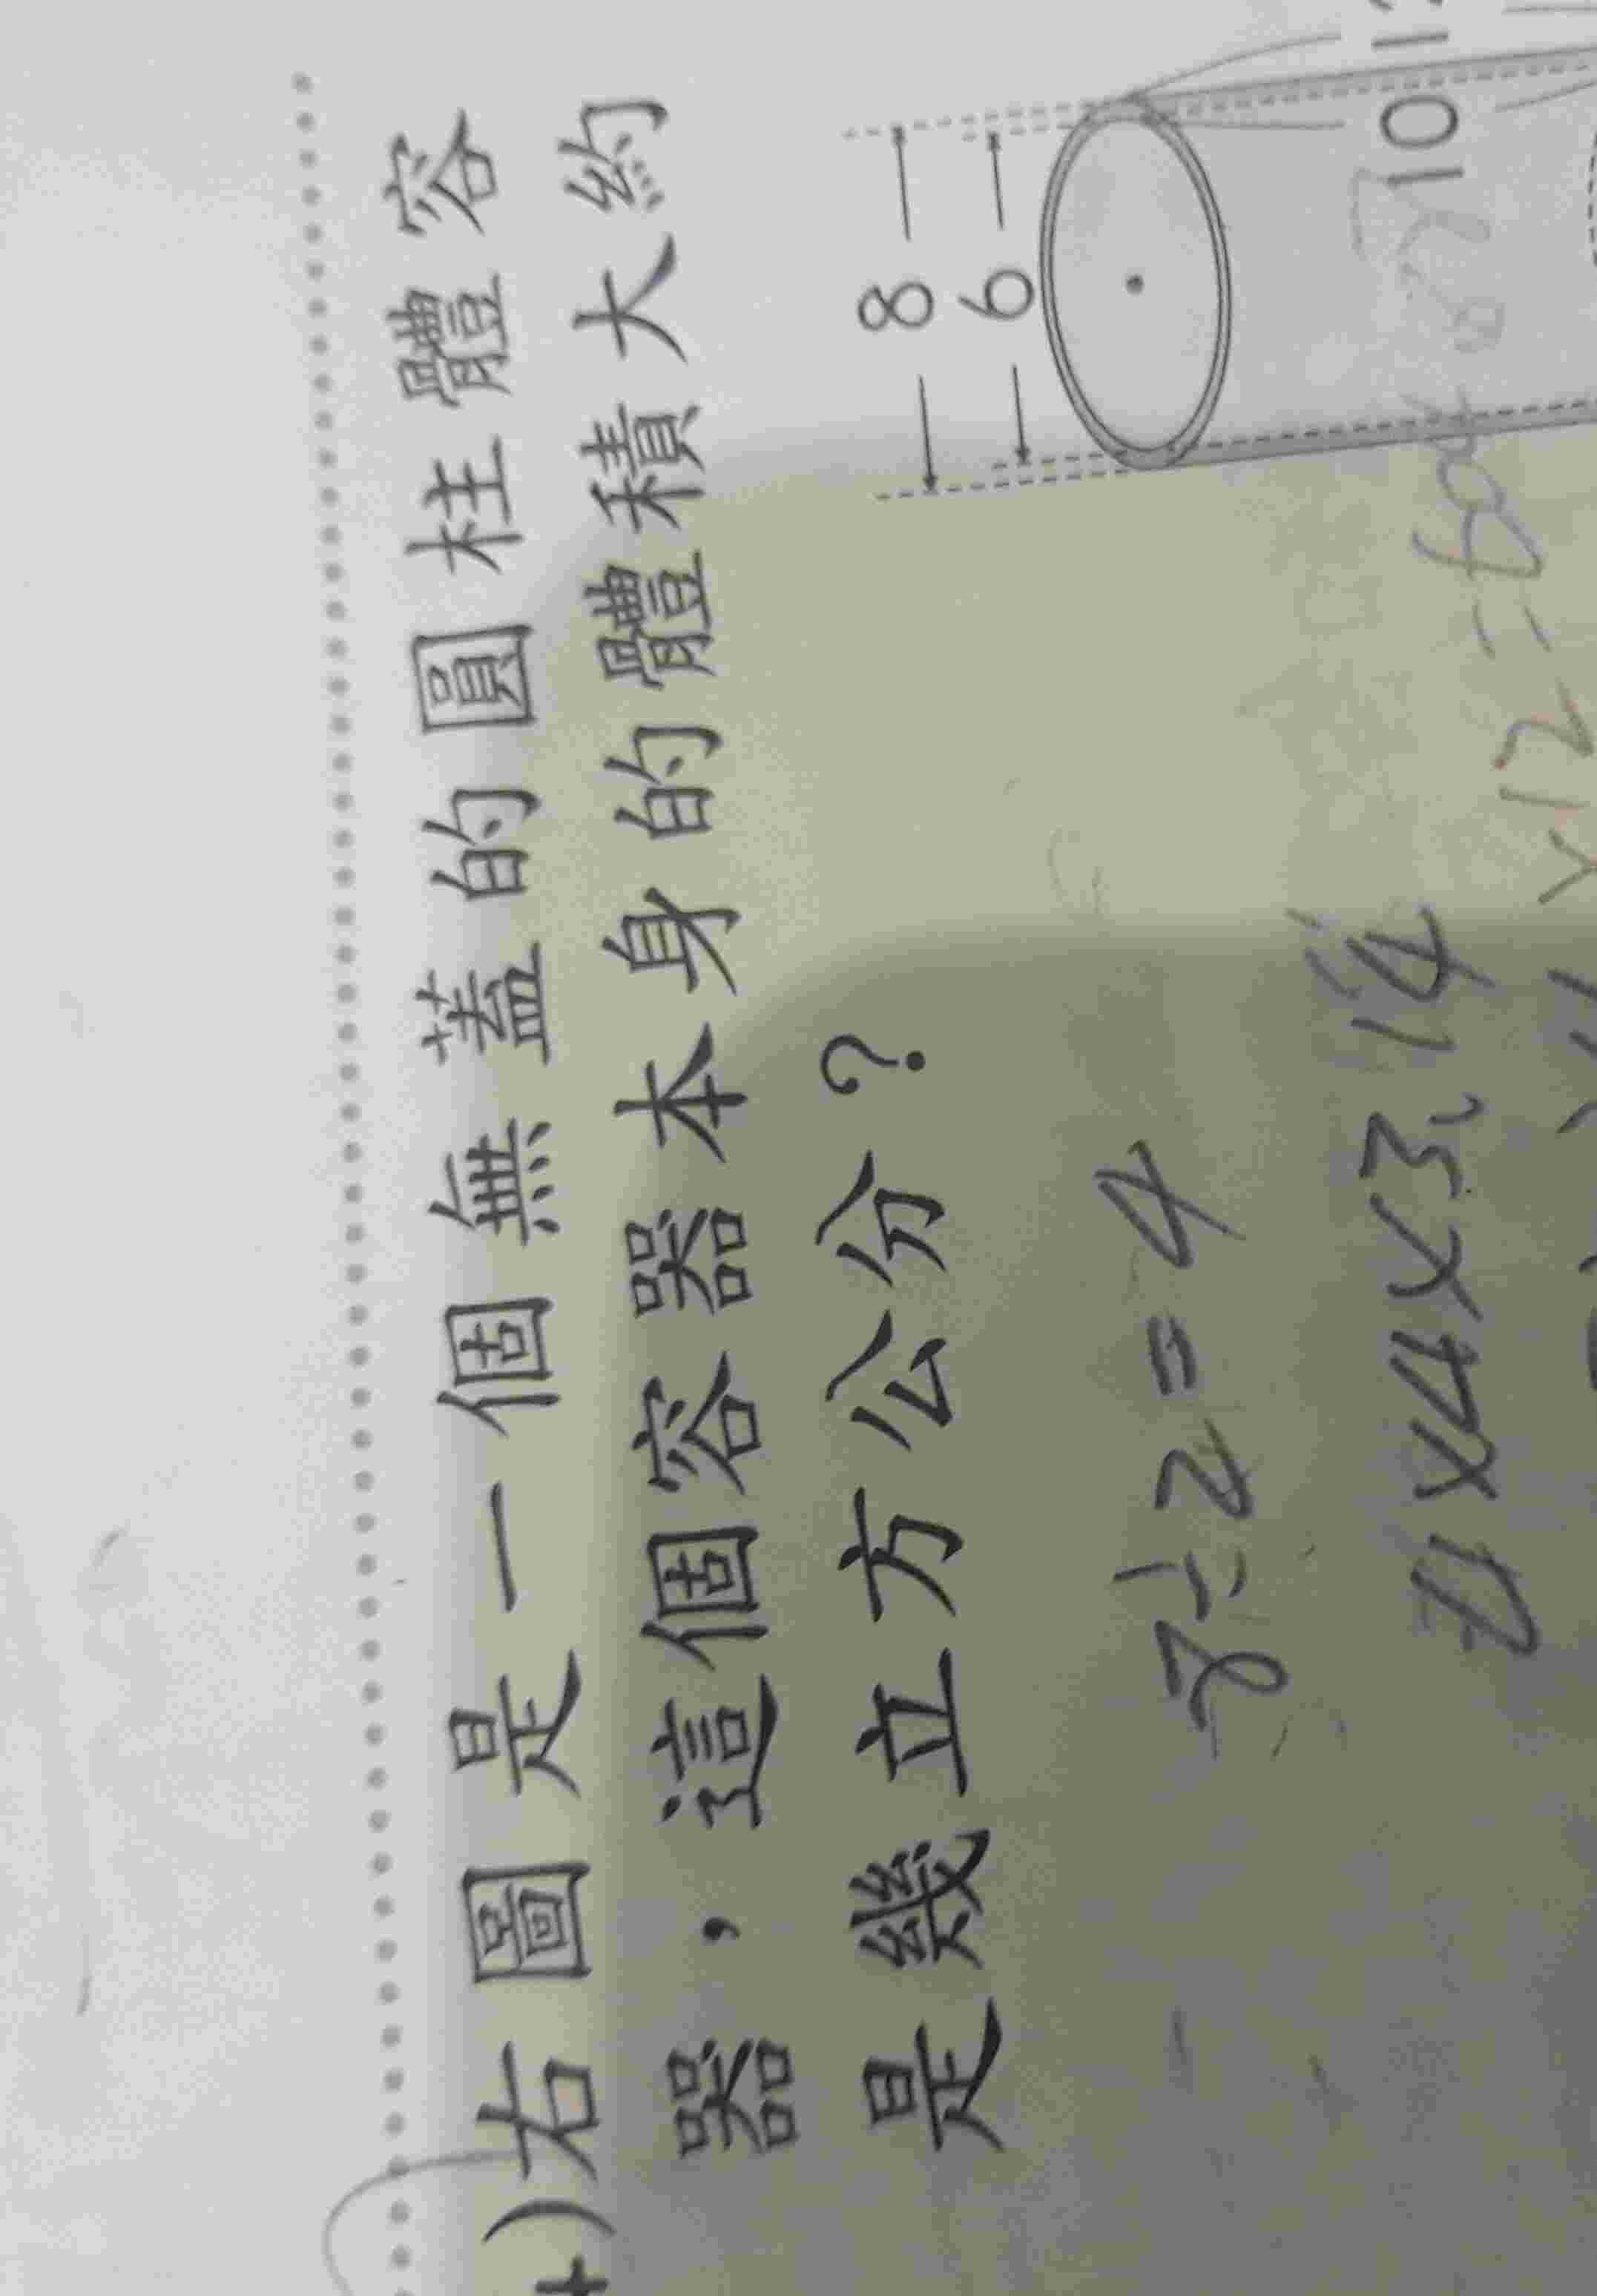 )右圖是一個無蓋的圓柱體容
器，這個容器本身的體積大約
是幾立方公分？
8
6
10
8÷2=4
4×4×3.14
×12=